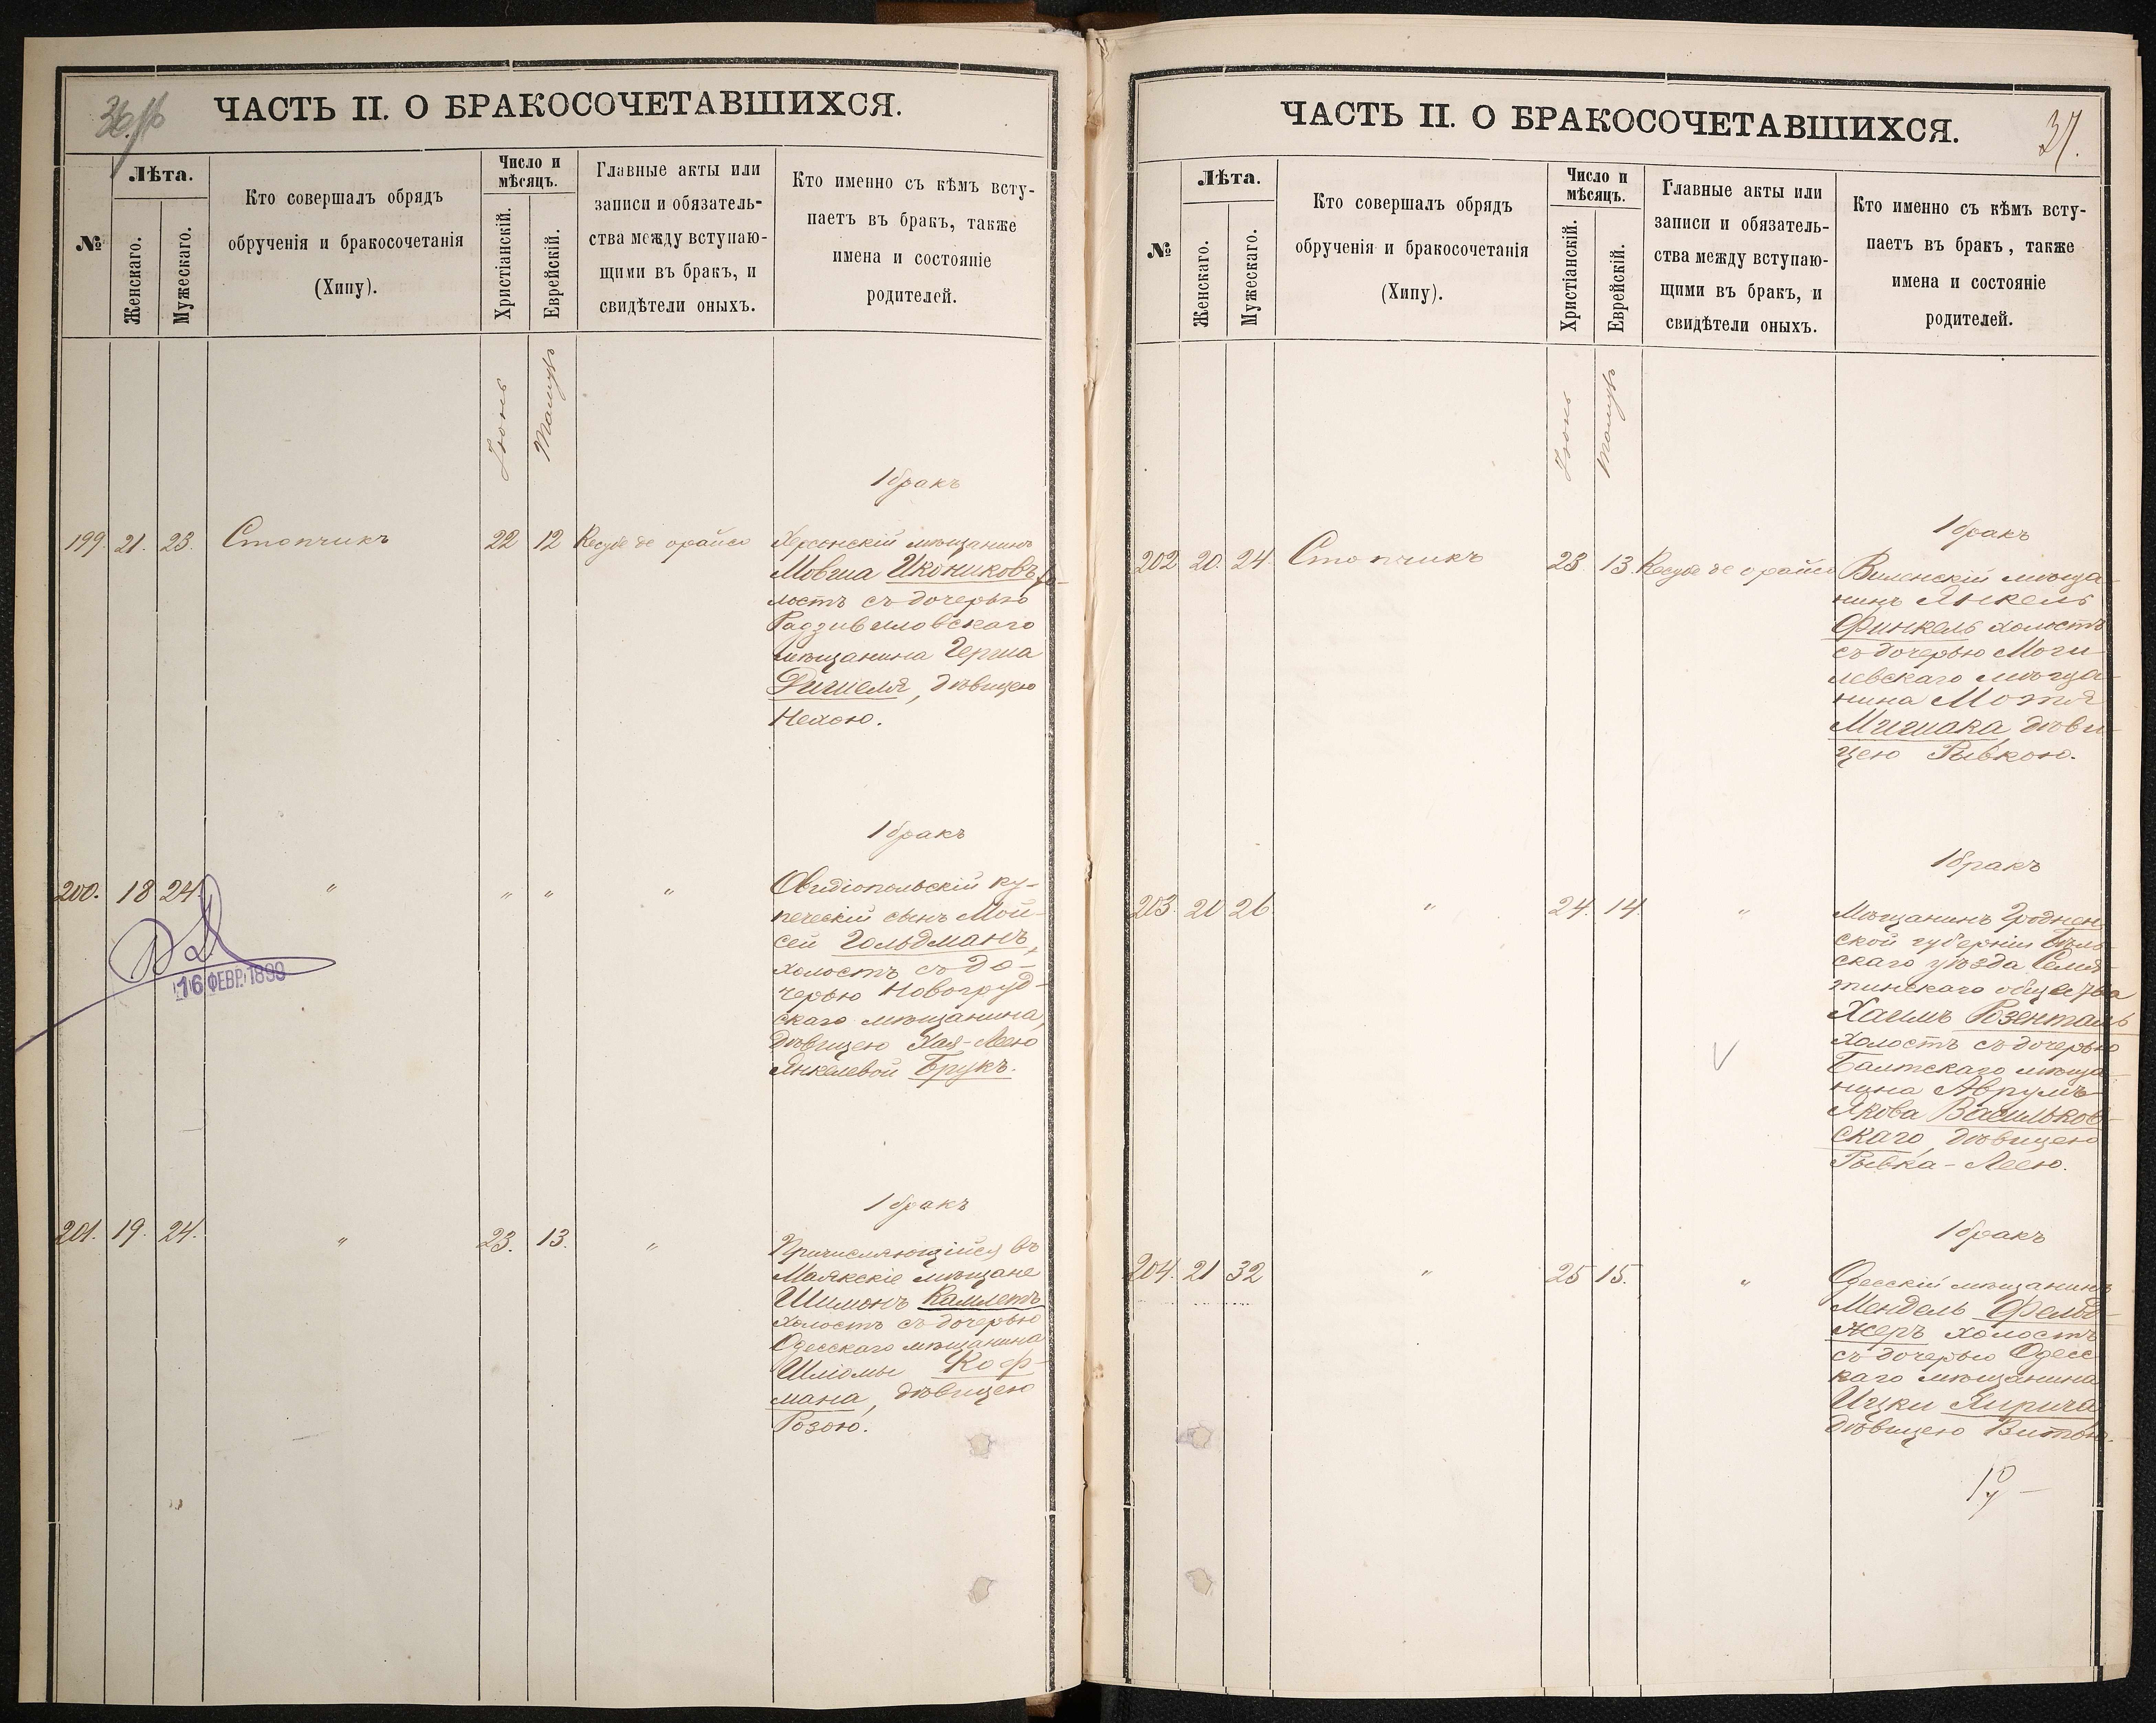 ЧАСТЬ II. О БРАКОСОЧЕТАВШИХСЯ.
№
Лѣта.
Женскаго.
Мужескаго.
Кто совершалъ обрядъ
обрученія и бракосочетанія
(Хипу).
Число и
мѣсяцъ.
Христіанскій.
Еврейскій.
Главные акты или
записи и обязатель-
ства между вступаю-
щими въ бракъ, и
свидѣтели оныхъ.
Кто именно съ кѣмъ всту-
паетъ въ бракъ, также
имена и состояніе
родителей.
Іюнь
Тамузъ
1 бракъ
199. 21. 23. Стопчикъ 22 12
Херсонскій мѣщанинъ
Мовша Икониковъ хо-
лостъ съ дочерью
Радзивиловскаго
мѣщанина Герша
Дишеля, дѣвицею
Нехою.
1 бракъ
200. 18 24. " " " "
Овидіопольскій ку-
печескій сынъ Мои-
сей Гольдманъ,
холостъ съ до-
черью Новогруд-
скаго мѣщанина,
дѣвицею Хая-Леею
Янкелевой Брукъ.
16 ФЕВР. 1899
1 бракъ
201. 19. 24. " 23. 13. "
Причисляющійся въ
Маякскіе мѣщане
Шимонъ Камлетъ
холостъ съ дочерью
Одесскаго мѣщанина
Шліомы Коф-
мана, дѣвицею
Розою.
ЧАСТЬ II. О БРАКОСОЧЕТАВШИХСЯ.
37.
№
Лѣта.
Женскаго.
Мужескаго.
Кто совершалъ обрядъ
обрученія и бракосочетанія
(Хипу).
Число и
мѣсяцъ.
Христіанскій.
Еврейскій.
Главные акты или
записи и обязатель-
ства между вступаю-
щими въ бракъ, и
свидѣтели оныхъ.
Кто именно съ кѣмъ всту-
паетъ въ бракъ, также
имена и состояніе
родителей.
Іюнь
Тамузъ
1 бракъ
202 20. 24 Стопчикъ 23 13
Виленскій мѣща-
нинъ Янкель
Финкель холостъ
съ дочерью Моги-
левскаго мѣща-
нина Мотя
Мишака дѣви-
цею Рывкою.
1 бракъ
203. 20 26 " 24. 14. "
Мѣщанинъ Гроднен
ской губерніи Бѣль-
скаго уѣзда Семя-
тинскаго общества
Хаимъ Розенталь
холостъ съ дочерью
Балтскаго мѣща-
нина Аврумъ
Якова Васильков-
скаго, дѣвицею
Рывка-Леею.
1 бракъ
204. 21 32 " 25 15. "
Одесскій мѣщанинъ
Мендель Фельд-
жеръ холостъ
съ дочерью Одесс
каго мѣщанина
Ицки Лирича
дѣвицею Витою.